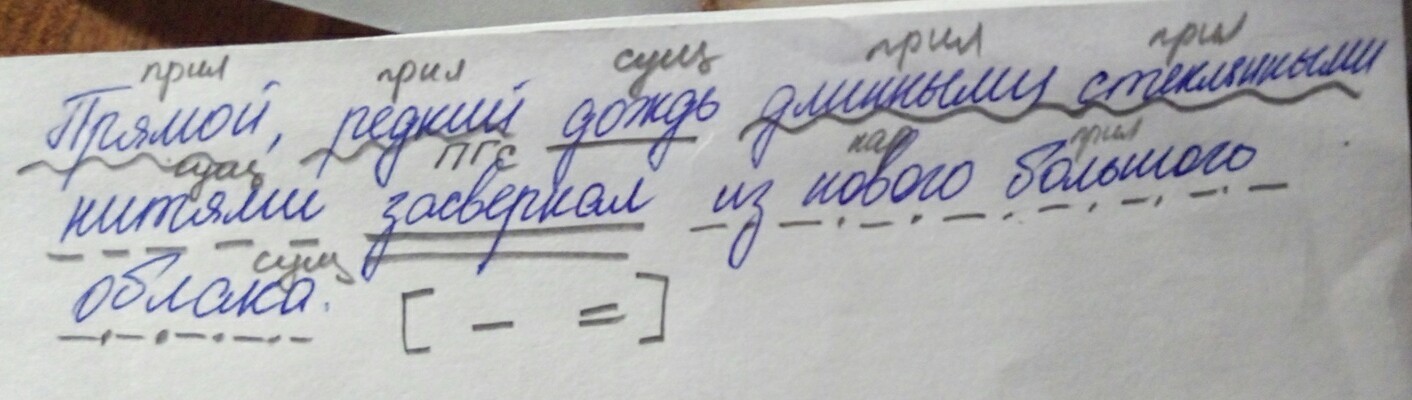 прил прил сущ прил прил
Прямой, редкий дождь длинными стеклянными
сущ ПГС нар прил
нитями засверкал из нового большого
сущ
облака. [ – = ]